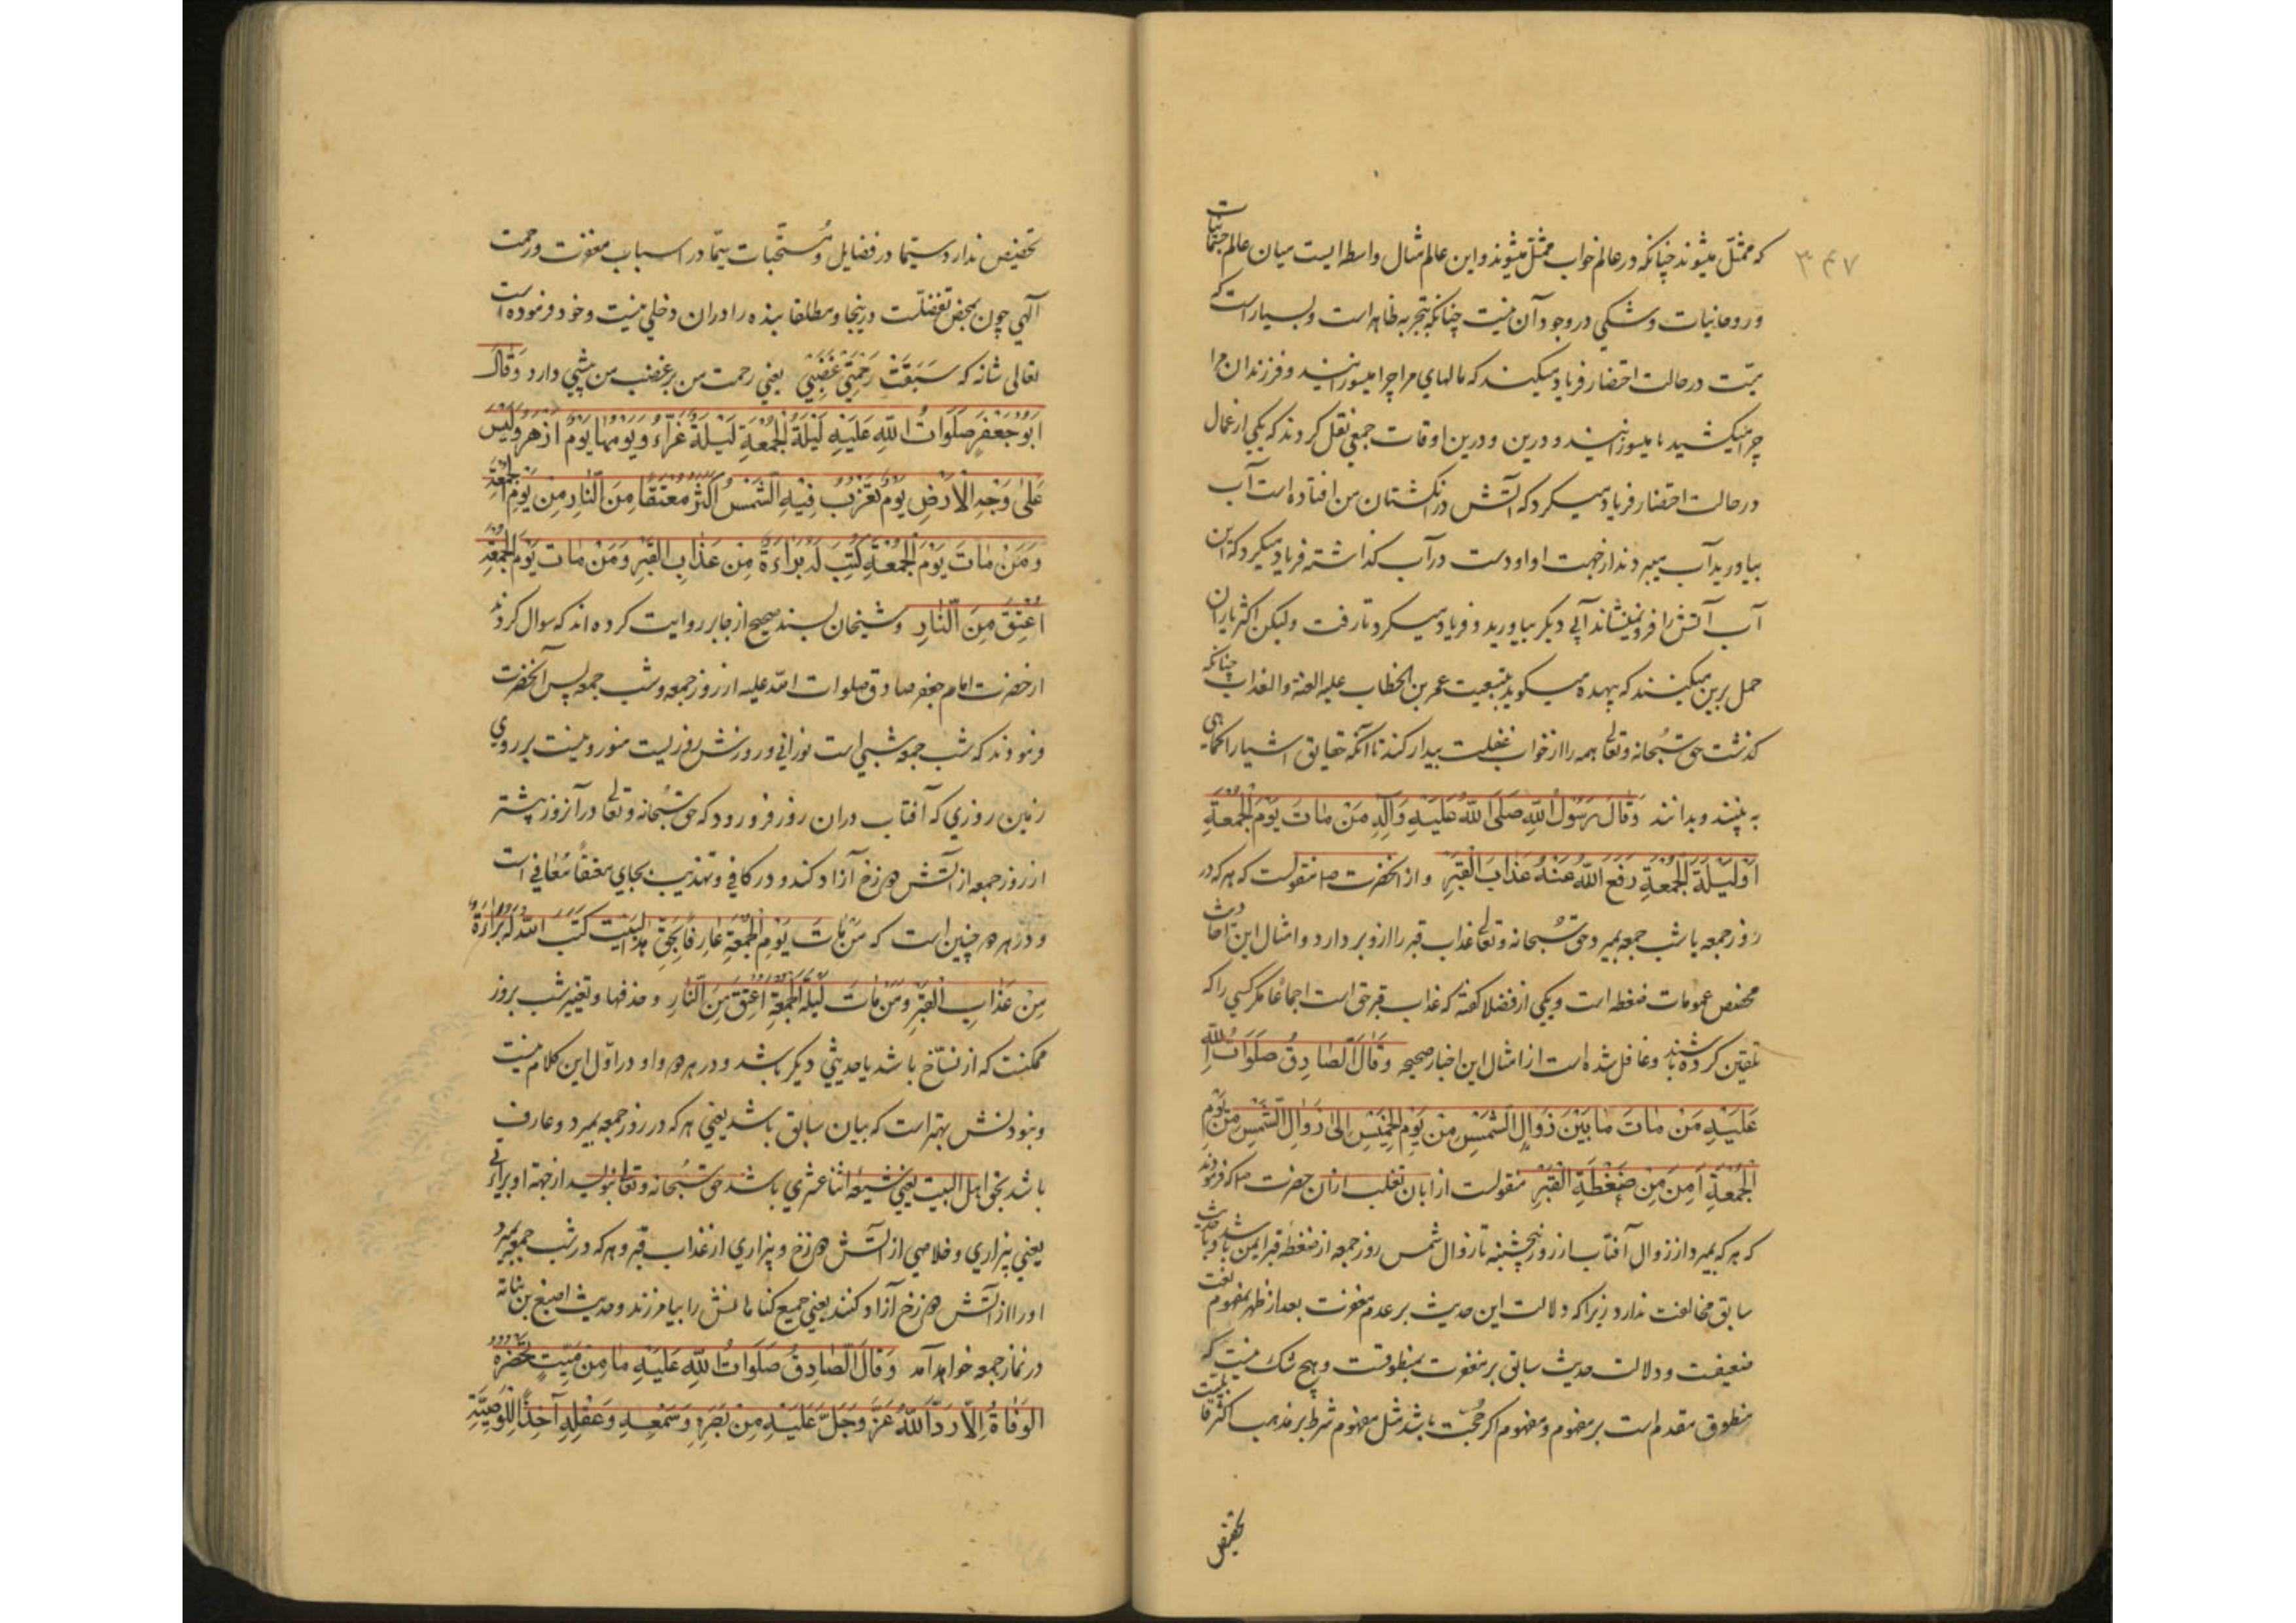 ۳۴۷
که ممثّل میشوند چنانکه در عالم خواب ممثّل میشوند و این عالم مثال واسطه ایست میان عالم جسمانیات
و روحانیات و شکی در وجود آن نیست چنانکه بتجربه ظاهر است و بسیار است که
میّت در حالت احتضار فریاد میکند که مالهای مرا چرا میسوزانید و فرزندان مرا
چرا میکشید یا میسوزانید و درین اوقات جمعی نقل کردند که یکی از عمال
در حالت احتضار فریاد میکرد که آتش در انگشتان من افتاده است آب
بیاورید آب میبردند از جهت او او دست در آب گذاشته فریاد میکرد که این
آب آتش را فرو نمینشاند آبی دیگر بیاورید و فریاد میکرد تا رفت ولیکن اکثر یاران
حمل برین میکنند که بیهده میگوید بتبعیت عمر بن الخطاب علیه اللعنة والعذاب چنانکه
گذشت حق سُبحانه وتعالی همه را از خواب غفلت بیدار کند تا آنکه حقایق اشیا را کماهی
به بینند و بدانند وَقالَ رَسُولُ اللّهِ صَلَّی اللّهُ عَلَیْهِ وَآلِهِ مَنْ ماتَ یَوْمَ الْجُمُعَةِ
اَوْ لَیْلَةَ الْجُمُعَةِ رَفَعَ اللّهُ عَنْهُ عَذابَ الْقَبْرِ و از آنحضرت ص منقولست که هر که در
روز جمعه یا شب جمعه بمیرد حق سُبحانه وتعالی عذاب قبر را ازو بردارد و امثال این احادیث
مخصص عمومات ضغطه است و یکی از فضلا گفته که عذاب قبر حق است اجماعا مگر کسی را که
تلقین کرده باشند و غافل شده است از امثال این اخبار صحیحه وَقالَ الصّادِقُ صَلَواتُ اللّهِ
عَلَیْهِ مَنْ ماتَ ما بَیْنَ زَوالِ الشَّمْسِ مِنْ یَوْمِ الْخَمِیْسِ اِلی زَوالِ الشَّمْسِ مِنْ یَوْمِ
الْجُمُعَةِ اَمِنَ مِنْ ضَغْطَةِ الْقَبْرِ منقولست از ابان تغلب از آن حضرت ص که فرمودند
که هر که بمیرد از زوال آفتاب از روز پنجشنبه تا زوال شمس روز جمعه از ضغطه قبر ایمن باشد و با حدیث
سابق مخالفت ندارد زیرا که دلالت این حدیث بر عدم مغفرت بعد از ظهر بمفهوم لغت
ضعیفت و دلالت حدیث سابق بر مغفرت بمنطوقست و هیچ شک نیست که
منطوق مقدم است بر مفهوم و مفهوم اگر حُجّت باشد مثل مفهوم شرط بر مذهب اکثر قابلیت
تخصیص
تخصیص ندارد سیّما در فضایل و مُستحّبات سیّما در اسباب مغفرت و رحمت
آلهی چون بمحض تفضّلست درینجا و مطلقا بنده را در ان دخلی نیست و خود فرموده است
تعالی شانه که سَبَقَتْ رَحْمَتِیْ غَضَبِیْ یعنی رحمت من بر غضب من پیشی دارد وَقالَ
اَبُوْ جَعْفَرٍ صَلَواتُ اللّهِ عَلَیْهِ لَیْلَةُ الْجُمُعَةِ لَیْلَةٌ غَرّاءُ وَیَوْمُها یَوْمٌ اَزْهَرُ وَلَیْسَ
عَلی وَجْهِ الْاَرْضِ یَوْمٌ تَغْرُبُ فِیْهِ الشَّمْسُ اَکْثَرُ مُعْتَقًا مِنَ النّارِ مِنْ یَوْمِ الْجُمُعَةِ
وَمَنْ ماتَ یَوْمَ الْجُمُعَةِ کُتِبَ لَهُ بَراءَةٌ مِنْ عَذابِ الْقَبْرِ وَمَنْ ماتَ یَوْمَ الْجُمُعَةِ
اُعْتِقَ مِنَ النّارِ و شیخان بسند صحیح از جابر روایت کرده اند که سوال کردند
از حضرت امام جعفر صادق صلوات اللّه علیه از روز جمعه و شب جمعه پس آنحضرت
فرمودند که شب جمعه شبی است نورانی و روزش روزیست منور و نیست بر روی
زمین روزی که آفتاب دران روز فرو رود که حق سُبحانه وتعالی در آنروز بیشتر
از روز جمعه از آتش دوزخ آزاد کند و در کافی و تهذیب بجای معتقًا مُعافی است
و در هر دو چنین است که مَنْ ماتَ یَوْمَ الْجُمُعَةِ عارِفًا بِحَقِّ اهل البَیْتِ کَتَبَ اللّهُ لَهُ بَراءَةً
مِنْ عَذابِ الْقَبْرِ وَمَنْ ماتَ لَیْلَةَ الْجُمُعَةِ اُعْتِقَ مِنَ النّارِ و حذفها و تغییر شب بروز
ممکنست که از نسّاخ باشد یا حدیثی دیگر باشد و در هر دو واو در اوّل این کلام نیست
و نبودنش بهتر است که بیان سابق باشد یعنی هر که در روز جمعه بمیرد و عارف
باشد بحق اهل البیت یعنی شیعه اثنا عشری باشد حق سُبحانه وتعالی بنویسد از جهة او براتی
یعنی بیزاری و خلاصی از آتش دوزخ و بیزاری از عذاب قبر و هر که در شب جمعه بمیرد
او را از آتش دوزخ آزاد کنند یعنی جمیع گناهانش را بیامرزند و حدیث اصبغ بن نباته
در نماز جمعه خواهد آمد وَقالَ الصّادِقُ صَلَواتُ اللّهِ عَلَیْهِ ما مِنْ مَیِّتٍ تَحْضُرُهُ
الْوَفاةُ اِلّا رَدَّ اللّهُ عَزَّ وَجَلَّ عَلَیْهِ مِنْ بَصَرِهِ وَسَمْعِهِ وَعَقْلِهِ آخِذًا لِلْوَصِیَّةِ